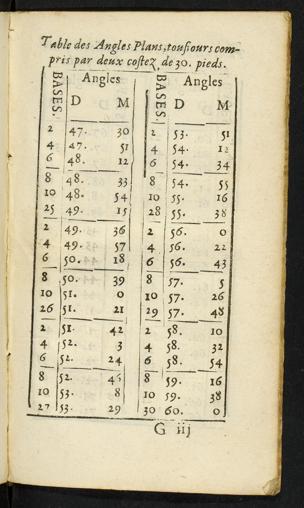 Table des Angles Plans, touſiours com-
pris par deux coſtez, de 30. pieds.
BASES. Angles BASES. Angles
D M D M
2 47. 30 2 53. 51
4 47. 51 4 54. 12
6 48. 12 6 54. 34
8 48. 33 8 54. 55
10 48. 54 10 55. 16
25 49. 15 28 55. 38
2 49. 36 2 56. 0
4 49. 57 4 56. 22
6 50. 18 6 56. 43
8 50. 39 8 57. 5
10 51. 0 10 57. 26
26 51. 21 29 57. 48
2 51. 42 2 58. 10
4 52. 3 4 58. 32
6 52. 24 6 58. 54
8 52. 45 8 59. 16
10 53. 8 10 59. 38
27 53. 29 30 60. 0
G iij